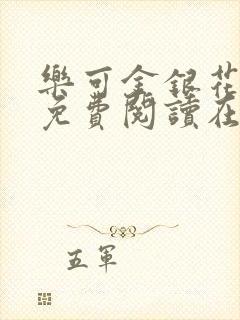 樂可金銀花
免費閱讀在
五軍